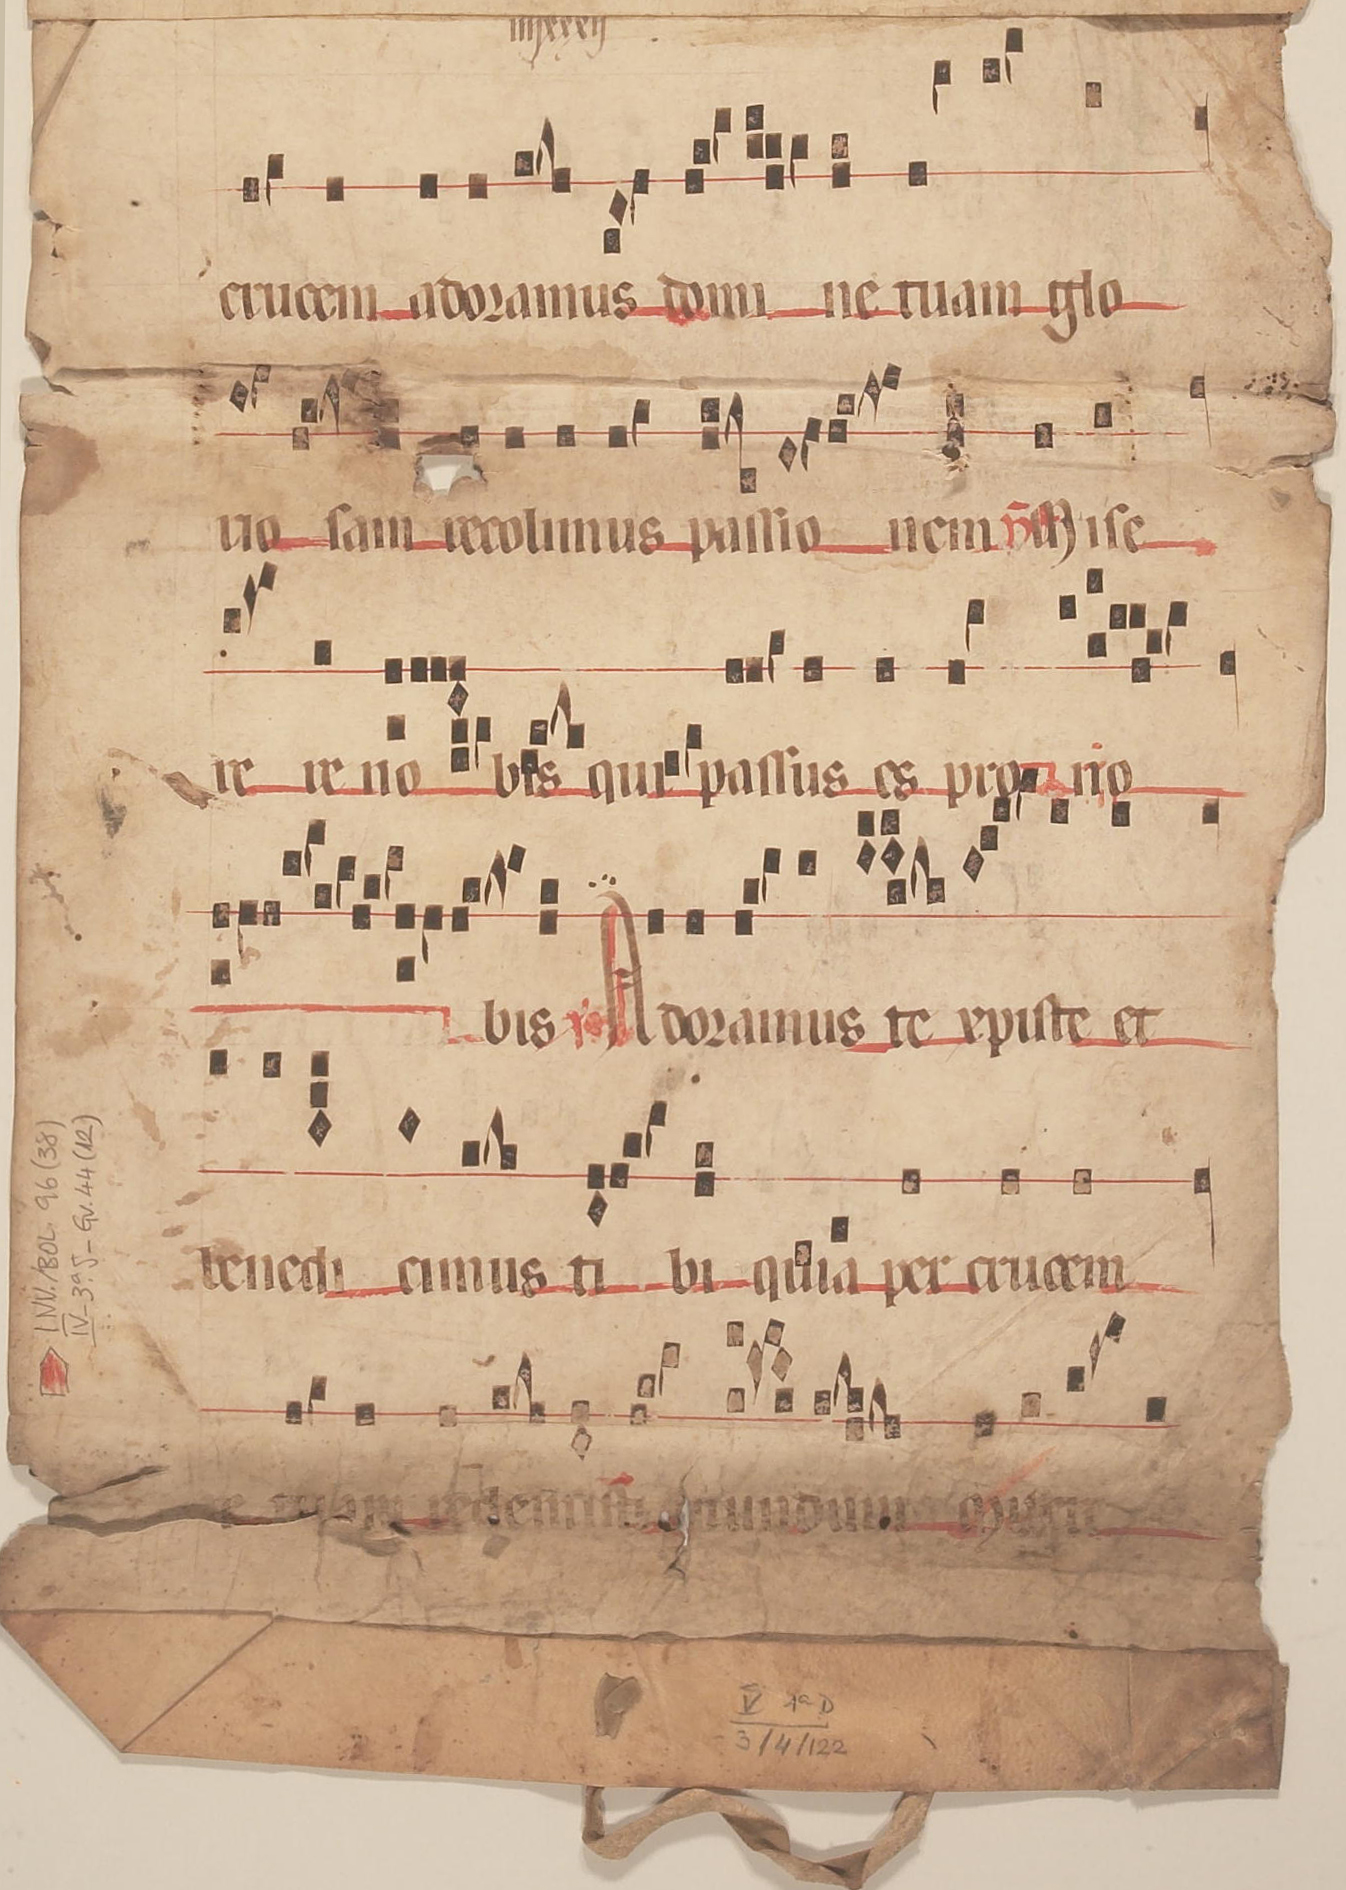 iiijxxxij
crucem adoramus domi ne tuam glo
rio sam recolimus passio nem ℣ Mise
re re no bis qui passus es pro no
bis ℟ Adoramus te xpiste et
benedi cimus ti bi quia per crucem
tuam redemisti mundum
INV./BOL. 96 (38)
IV-3ªJ-Gv.44(12)
V 1ª D
3/4/122